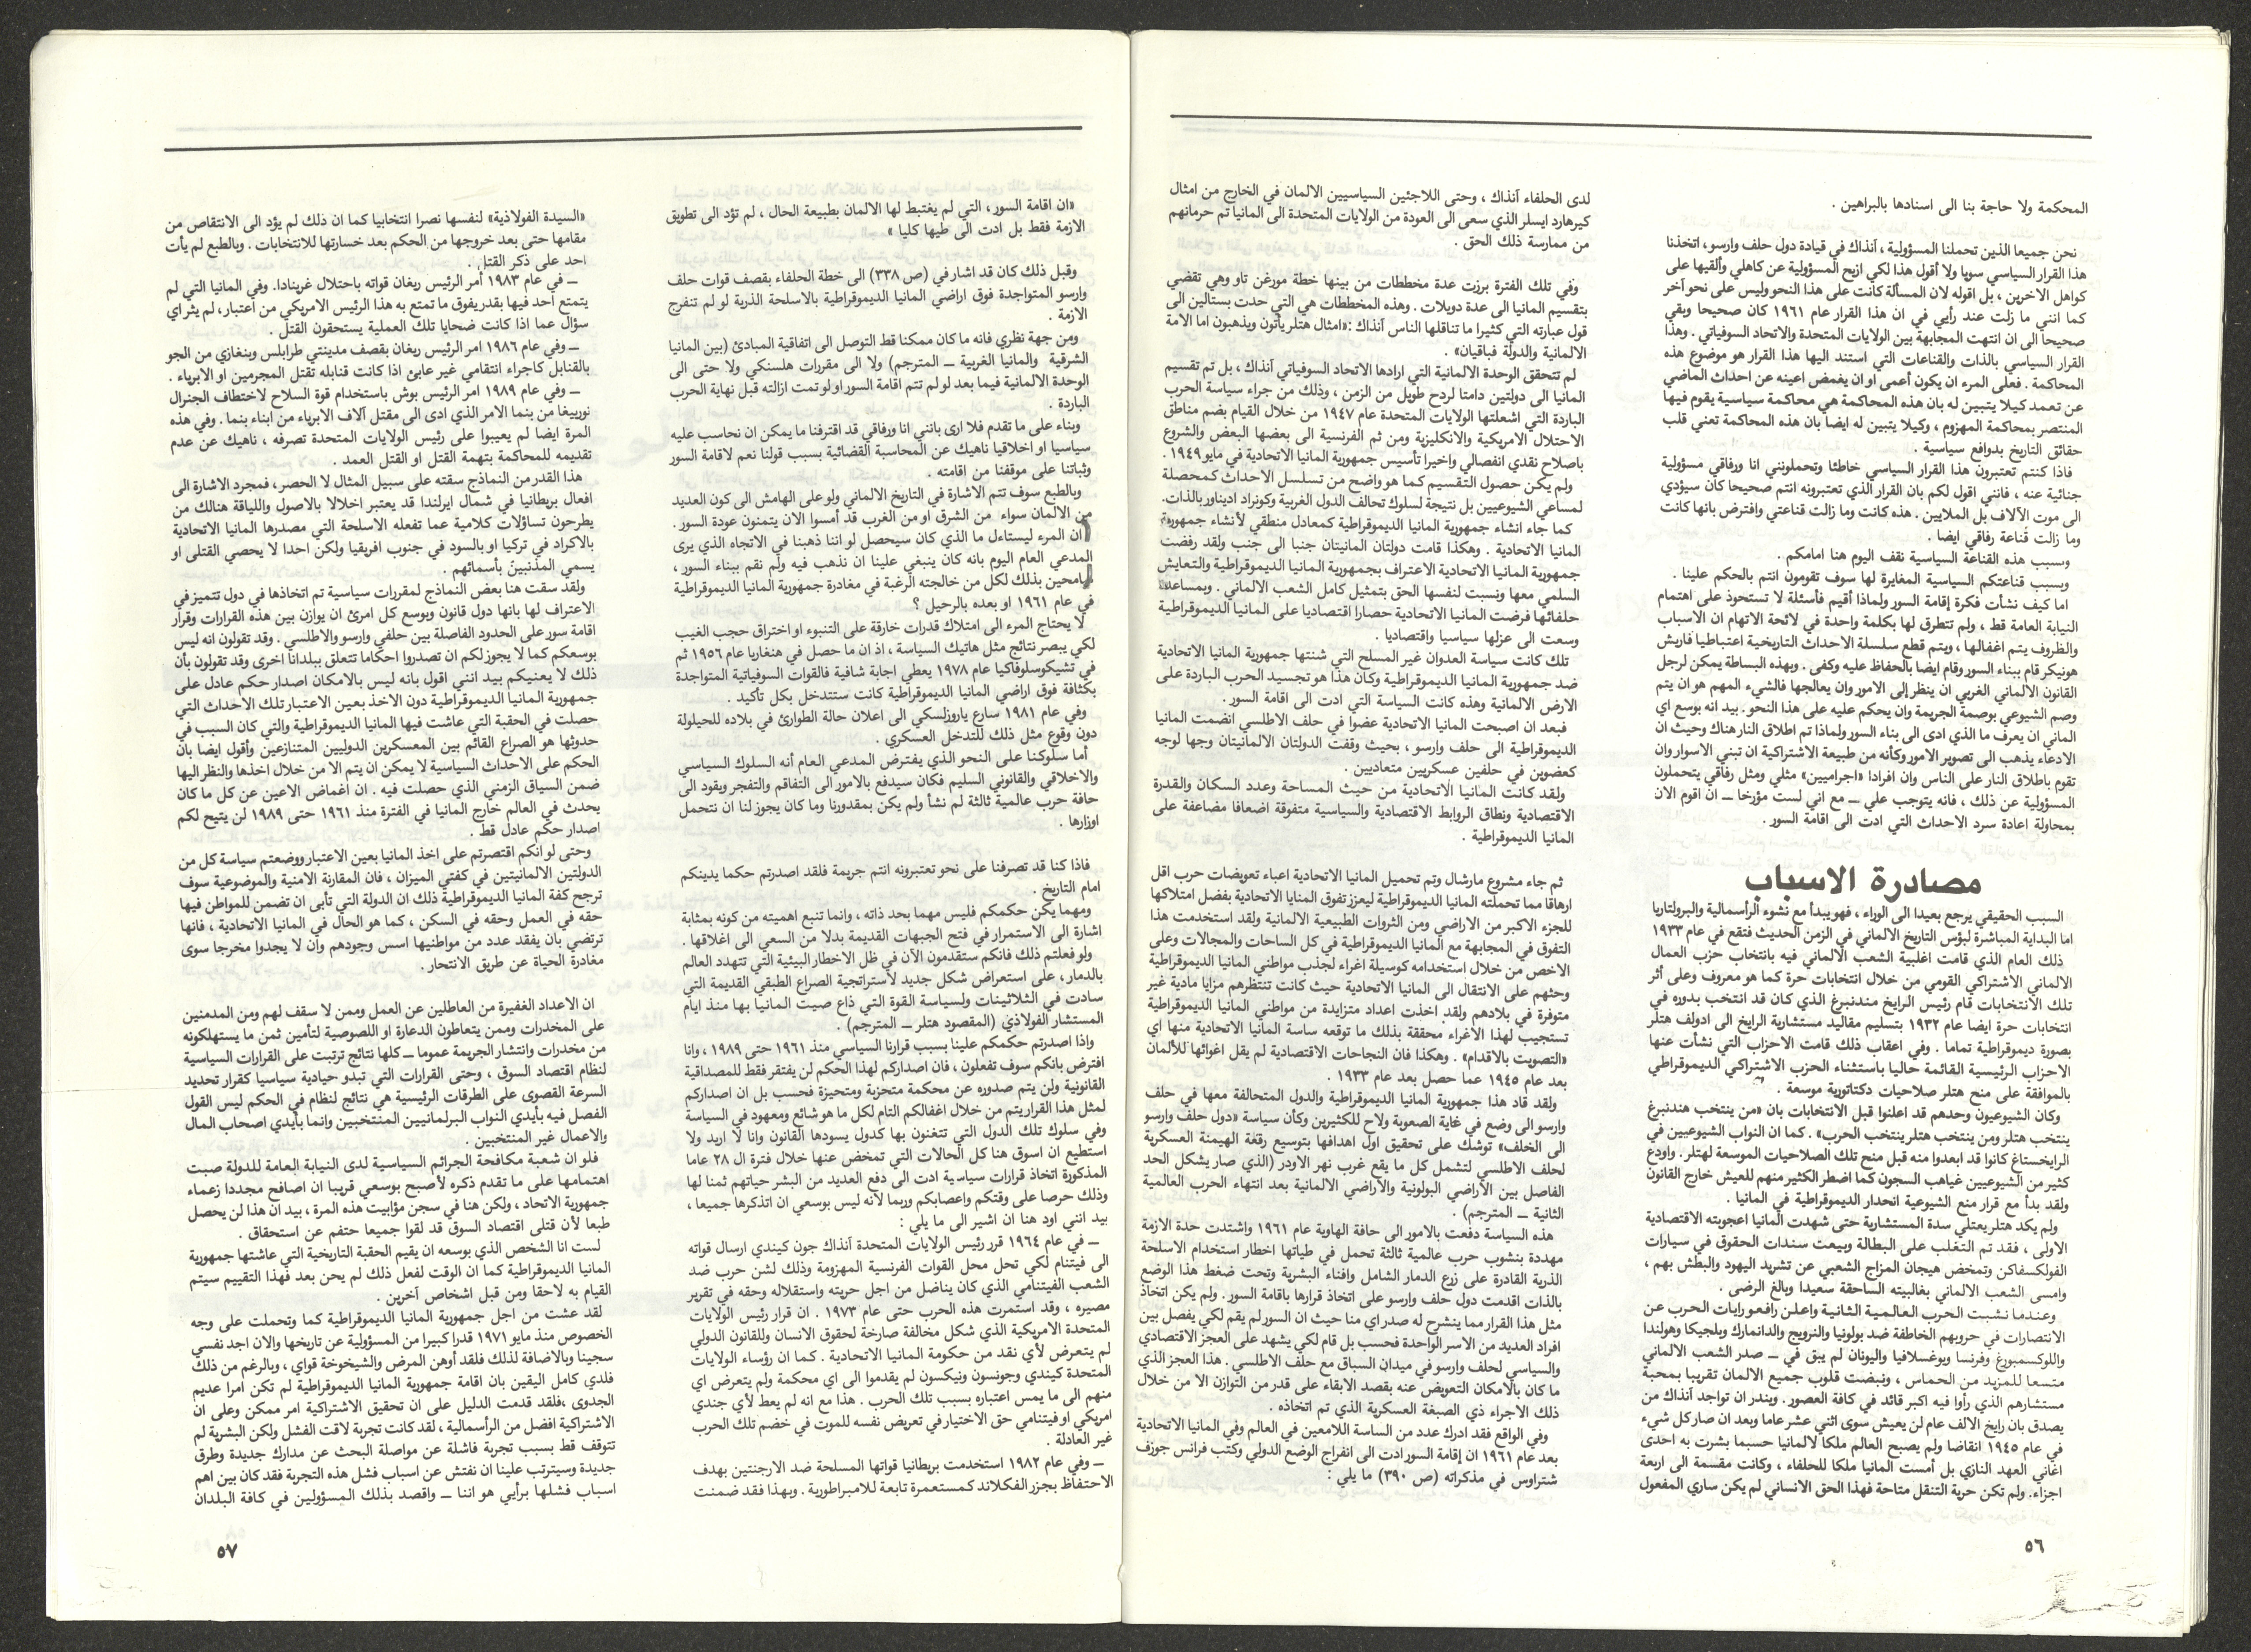 المحكمة ولا حاجة بنا الى اسنادها بالبراهين .
نحن جميعا الذين تحملنا المسؤولية ، آنذاك في قيادة دول حلف وارسو ، اتخذنا
هذا القرار السياسي سويا ولا أقول هذا لكي ازيح المسؤولية عن كاهلي وألقيها على
كواهل الاخرين ، بل اقوله لان المسألة كانت على هذا النحو وليس على نحو آخر
كما انني ما زلت عند رأيي في ان هذا القرار عام ١٩٦١ كان صحيحا وبقي
صحيحاً الى ان انتهت المجابهة بين الولايات المتحدة والاتحاد السوفياتي . وهذا
القرار السياسي بالذات والقناعات التي استند اليها هذا القرار هو موضوع هذه
المحاكمة . فعلى المرء ان يكون أعمى او ان يغمض اعينه عن احداث الماضي
عن تعمد كيلا يتبين له بان هذه المحاكمة هي محاكمة سياسية يقوم فيها
المنتصر بمحاكمة المهزوم ، وكيلا يتبين له ايضا بان هذه المحاكمة تعني قلب
حقائق التاريخ بدوافع سياسية .
فاذا كنتم تعتبرون هذا القرار السياسي خاطئا وتحملونني انا ورفاقي مسؤولية
جنائية عنه ، فانني اقول لكم بان القرار الذي تعتبرونه انتم صحيحا كان سيؤدي
الى موت الآلاف بل الملايين . هذه كانت وما زالت قناعتي وافترض بانها كانت
وما زالت قناعة رفاقي ايضا .
وبسبب هذه القناعة السياسية نقف اليوم هنا امامكم .
وبسبب قناعتكم السياسية المغايرة لها سوف تقومون انتم بالحكم علينا .
اما كيف نشأت فكرة إقامة السور ولماذا أقيم فأسئلة لا تستحوذ على اهتمام
النيابة العامة قط ، ولم تتطرق لها بكلمة واحدة في لائحة الاتهام ان الاسباب
والظروف يتم اغفالها ، ويتم قطع سلسلة الاحداث التاريخية اعتباطيا فاريش
هونيكر قام ببناء السور وقام ايضا بالحفاظ عليه وكفى . وبهذه البساطة يمكن لرجل
القانون الالماني الغربي ان ينظر إلى الامور وان يعالجها فالشيء المهم هو ان يتم
وصم الشيوعي بوصمة الجريمة وان يحكم عليه على هذا النحو . بيد انه بوسع اي
الماني ان يعرف ما الذي ادى الى بناء السور ولماذا تم اطلاق النار هناك وحيث ان
الادعاء يذهب الى تصوير الامور وكأنه من طبيعة الاشتراكية ان تبني الاسوار وان
تقوم باطلاق النار على الناس وان افرادا «اجراميين» مثلي ومثل رفاقي يتحملون
المسؤولية عن ذلك ، فانه يتوجب علي ــ مع اني لست مؤرخا ــ ان اقوم الان
بمحاولة اعادة سرد الاحداث التي ادت الى اقامة السور .
مصادرة الاسباب
السبب الحقيقي يرجع بعيدا الى الوراء ، فهو يبدأ مع نشوء الرأسمالية والبرولتاريا
اما البداية المباشرة لبؤس التاريخ الالماني في الزمن الحديث فتقع في عام ١٩٣٣
ذلك العام الذي قامت اغلبية الشعب الالماني فيه بانتخاب حزب العمال
الالماني الاشتراكي القومي من خلال انتخابات حرة كما هو معروف وعلى أثر
تلك الانتخابات قام رئيس الرايخ مندنبرغ الذي كان قد انتخب بدوره في
انتخابات حرة ايضا عام ١٩٣٢ بتسليم مقاليد مستشارية الرايخ الى ادولف هتلر
بصورة ديموقراطية تماما . وفي اعقاب ذلك قامت الاحزاب التي نشأت عنها
الاحزاب الرئيسية القائمة حاليا باستثناء الحزب الاشتراكي الديموقراطي
بالموافقة على منح هتلر صلاحيات دكتاتورية موسعة .
وكان الشيوعيون وحدهم قد اعلنوا قبل الانتخابات بان «من ينتخب هندنبرغ
ينتخب هتلر ومن ينتخب هتلر ينتخب الحرب» . كما ان النواب الشيوعيين في
الرايخستاغ كانوا قد ابعدوا منه قبل منح تلك الصلاحيات الموسعة لهتلر . واودع
كثير من الشيوعيين غياهب السجون كما اضطر الكثير منهم للعيش خارج القانون
ولقد بدأ مع قرار منع الشيوعية انحدار الديموقراطية في المانيا .
ولم يكد هتلر يعتلي سدة المستشارية حتى شهدت المانيا اعجوبته الاقتصادية
الاولى ، فقد تم التغلب على البطالة وبيعت سندات الحقوق في سيارات
الفولكسفاكن وتمخض هيجان المزاج الشعبي عن تشريد اليهود والبطش بهم ،
وامسى الشعب الالماني بغالبيته الساحقة سعيدا وبالغ الرضى .
وعندما نشبت الحرب العالمية الثانية واعلن رافعو رايات الحرب عن
الانتصارات في حروبهم الخاطفة ضد بولونيا والنرويج والدانمارك وبلجيكا وهولندا
واللوكسمبورغ وفرنسا ويوغسلافيا واليونان لم يبق في ــ صدر الشعب الالماني
متسعا للمزيد من الحماس ، ونبضت قلوب جميع الالمان تقريبا بمحبة
مستشارهم الذي رأوا فيه اكبر قائد في كافة العصور . ويندر ان تواجد آنذاك من
يصدق بان رايخ الالف عام لن يعيش سوى اثني عشر عاما وبعد ان صار كل شيء
في عام ١٩٤٥ انقاضا ولم يصبح العالم ملكا لالمانيا حسبما بشرت به احدى
اغاني العهد النازي بل أمست المانيا ملكا للحلفاء ، وكانت مقسمة الى اربعة
اجزاء. ولم تكن حرية التنقل متاحة فهذا الحق الانساني لم يكن ساري المفعول
لدى الحلفاء آنذاك ، وحتى اللاجئين السياسيين الالمان في الخارج من امثال
كيرهارد ايسلر الذي سعى الى العودة من الولايات المتحدة الى المانيا تم حرمانهم
من ممارسة ذلك الحق .
وفي تلك الفترة برزت عدة مخططات من بينها خطة مورغن تاو وهي تقضي
بتقسيم المانيا الى عدة دويلات . وهذه المخططات هي التي حدت بستالين الى
قول عبارته التي كثيرا ما تناقلها الناس آنذاك :«امثال هتلر يأتون ويذهبون اما الامة
الالمانية والدولة فباقيان» .
لم تتحقق الوحدة الالمانية التي ارادها الاتحاد السوفياتي آنذاك ، بل تم تقسيم
المانيا الى دولتين دامتا لردح طويل من الزمن ، وذلك من جراء سياسة الحرب
الباردة التي اشعلتها الولايات المتحدة عام ١٩٤٧ من خلال القيام بضم مناطق
الاحتلال الامريكية والانكليزية ومن ثم الفرنسية الى بعضها البعض والشروع
باصلاح نقدي انفصالي واخيرا تأسيس جمهورية المانيا الاتحادية في مايو ١٩٤٩ .
ولم يكن حصول التقسيم كما هو واضح من تسلسل الاحداث كمحصلة
لمساعي الشيوعيين بل نتيجة لسلوك تحالف الدول الغربية وكونراد اديناور بالذات.
كما جاء انشاء جمهورية المانيا الديموقراطية كمعادل منطقي لأنشاء جمهورية
المانيا الاتحادية . وهكذا قامت دولتان المانيتان جنبا الى جنب ولقد رفضت
جمهورية المانيا الاتحادية الاعتراف بجمهورية المانيا الديموقراطية والتعايش
السلمي معها ونسبت لنفسها الحق بتمثيل كامل الشعب الالماني . وبمساعدة
حلفائها فرضت المانيا الاتحادية حصارا اقتصاديا على المانيا الديموقراطية
وسعت الى عزلها سياسيا واقتصاديا .
تلك كانت سياسة العدوان غير المسلح التي شنتها جمهورية المانيا الاتحادية
ضد جمهورية المانيا الديموقراطية وكان هذا هو تجسيد الحرب الباردة على
الارض الالمانية وهذه كانت السياسة التي ادت الى اقامة السور .
فبعد ان اصبحت المانيا الاتحادية عضوا في حلف الاطلسي انضمت المانيا
الديموقراطية الى حلف وارسو ، بحيث وقفت الدولتان الالمانيتان وجها لوجه
كعضوين في حلفين عسكريين متعاديين .
ولقد كانت المانيا الاتحادية من حيث المساحة وعدد السكان والقدرة
الاقتصادية ونطاق الروابط الاقتصادية والسياسية متفوقة اضعافا مضاعفة على
المانيا الديموقراطية .
ثم جاء مشروع مارشال وتم تحميل المانيا الاتحادية اعباء تعويضات حرب اقل
ارهاقا مما تحملته المانيا الديموقراطية ليعزز تفوق المنايا الاتحادية بفضل امتلاكها
للجزء الاكبر من الاراضي ومن الثروات الطبيعية الالمانية ولقد استخدمت هذا
التفوق في المجابهة مع المانيا الديموقراطية في كل الساحات والمجالات وعلى
الاخص من خلال استخدامه كوسيلة اغراء لجذب مواطني المانيا الديموقراطية
وحثهم على الانتقال الى المانيا الاتحادية حيث كانت تنتظرهم مزايا مادية غير
متوفرة في بلادهم ولقد اخذت اعداد متزايدة من مواطني المانيا الديموقراطية
تستجيب لهذا الاغراء محققة بذلك ما توقعه ساسة المانيا الاتحادية منها اي
«التصويت بالاقدام» . وهكذا فان النجاحات الاقتصادية لم يقل اغوائها للألمان
بعد عام ١٩٤٥ عما حصل بعد عام ١٩٣٣ .
ولقد قاد هذا جمهورية المانيا الديموقراطية والدول المتحالفة معها في حلف
وارسو الى وضع في غاية الصعوبة ولاح للكثيرين وكأن سياسة «دول حلف وارسو
الى الخلف» توشك على تحقيق اول اهدافها بتوسيع رقعة الهيمنة العسكرية
لحلف الاطلسي لتشمل كل ما يقع غرب نهر الاودر (الذي صار يشكل الحد
الفاصل بين الأراضي البولونية والأراضي الالمانية بعد انتهاء الحرب العالمية
الثانية ــ المترجم) .
هذه السياسة دفعت بالامور الى حافة الهاوية عام ١٩٦١ واشتدت حدة الازمة
مهددة بنشوب حرب عالمية ثالثة تحمل في طياتها اخطار استخدام الاسلحة
الذرية القادرة على زرع الدمار الشامل وافناء البشرية وتحت ضغط هذا الوضع
بالذات اقدمت دول حلف وارسو على اتخاذ قرارها باقامة السور . ولم يكن اتخاذ
مثل هذا القرار مما ينشرح له صدر اي منا حيث ان السور لم يقم لكي يفصل بين
افراد العديد من الاسر الواحدة فحسب بل قام لكي يشهد على العجز الاقتصادي
والسياسي لحلف وارسو في ميدان السباق مع حلف الاطلسي . هذا العجز الذي
ما كان بالامكان التعويض عنه بقصد الابقاء على قدر من التوازن الا من خلال
ذلك الاجراء ذي الصبغة العسكرية الذي تم اتخاذه .
وفي الواقع فقد ادرك عدد من الساسة اللامعين في العالم وفي المانيا الاتحادية
بعد عام ١٩٦١ ان إقامة السور ادت الى انفراج الوضع الدولي وكتب فرانس جوزف
شتراوس في مذكراته (ص ٣٩٠) ما يلي :
٥٦
«ان اقامة السور ، التي لم يغتبط لها الالمان بطبيعة الحال ، لم تؤد الى تطويق
الازمة فقط بل ادت الى طيها كليا »
وقبل ذلك كان قد اشار في (ص ٣٣٨) الى خطة الحلفاء بقصف قوات حلف
وارسو المتواجدة فوق اراضي المانيا الديموقراطية بالاسلحة الذرية لو لم تنفرج
الازمة .
ومن جهة نظري فانه ما كان ممكنا قط التوصل الى اتفاقية المبادئ (بين المانيا
الشرقية والمانيا الغربية ــ المترجم) ولا الى مقررات هلسنكي ولا حتى الى
الوحدة الالمانية فيما بعد لو لم تتم اقامة السور او لو تمت ازالته قبل نهاية الحرب
الباردة .
وبناء على ما تقدم فلا ارى بانني انا ورفاقي قد اقترفنا ما يمكن ان نحاسب عليه
سياسيا او اخلاقيا ناهيك عن المحاسبة القضائية بسبب قولنا نعم لاقامة السور
وثباتنا على موقفنا من اقامته .
وبالطبع سوف تتم الاشارة في التاريخ الالماني ولو على الهامش الى كون العديد
من الالمان سواء من الشرق او من الغرب قد أمسوا الان يتمنون عودة السور .
ان المرء ليستاءل ما الذي كان سيحصل لو اننا ذهبنا في الاتجاه الذي يرى
المدعي العام اليوم بانه كان ينبغي علينا ان نذهب فيه ولم نقم ببناء السور ،
سامحين بذلك لكل من خالجته الرغبة في مغادرة جمهورية المانيا الديموقراطية
في عام ١٩٦١ او بعده بالرحيل ؟
لا يحتاج المرء الى امتلاك قدرات خارقة على التنبوء او اختراق حجب الغيب
لكي يبصر نتائج مثل هاتيك السياسة ، اذ ان ما حصل في هنغاريا عام ١٩٥٦ ثم
في تشيكوسلوفاكيا عام ١٩٧٨ يعطي اجابة شافية فالقوات السوفياتية المتواجدة
بكثافة فوق اراضي المانيا الديموقراطية كانت ستتدخل بكل تأكيد .
وفي عام ١٩٨١ سارع ياروزلسكي الى اعلان حالة الطوارئ في بلاده للحيلولة
دون وقوع مثل ذلك للتدخل العسكري .
أما سلوكنا على النحو الذي يفترض المدعي العام أنه السلوك السياسي
والاخلاقي والقانوني السليم فكان سيدفع بالامور الى التفاقم والتفجر ويقود الى
حافة حرب عالمية ثالثة لم نشأ ولم يكن بمقدورنا وما كان يجوز لنا ان نتحمل
اوزارها .
فاذا كنا قد تصرفنا على نحو تعتبرونه انتم جريمة فلقد اصدرتم حكما يدينكم
امام التاريخ .
ومهما يكن حكمكم فليس مهما بحد ذاته ، وانما تنبع اهميته من كونه بمثابة
اشارة الى الاستمرار في فتح الجبهات القديمة بدلا من السعي الى اغلاقها .
ولو فعلتم ذلك فانكم ستقدمون الآن في ظل الاخطار البيئية التي تتهدد العالم
بالدمار ، على استعراض شكل جديد لأستراتجية الصراع الطبقي القديمة التي
سادت في الثلاثينات ولسياسة القوة التي ذاع صيت المانيا بها منذ ايام
المستشار الفولاذي (المقصود هتلر ــ المترجم) .
واذا اصدرتم حكمكم علينا بسبب قرارنا السياسي منذ ١٩٦١ حتى ١٩٨٩ ، وانا
افترض بانكم سوف تفعلون ، فان اصداركم لهذا الحكم لن يفتقر فقط للمصداقية
القانونية ولن يتم صدوره عن محكمة متحزبة ومتحيزة فحسب بل ان اصداركم
لمثل هذا القرار يتم من خلال اغفالكم التام لكل ما هو شائع ومعهود في السياسة
وفي سلوك تلك الدول التي تتغنون بها كدول يسودها القانون وانا لا اريد ولا
استطيع ان اسوق هنا كل الحالات التي تمخض عنها خلال فترة ال ٢٨ عاما
المذكورة اتخاذ قرارات سياسية ادت الى دفع العديد من البشر حياتهم ثمنا لها
وذلك حرصا على وقتكم واعصابكم وربما لأنه ليس بوسعي ان اتذكرها جميعا ،
بيد انني اود هنا ان اشير الى ما يلي :
ــ في عام ١٩٦٤ قرر رئيس الولايات المتحدة آنذاك جون كيندي ارسال قواته
الى فيتنام لكي تحل محل القوات الفرنسية المهزومة وذلك لشن حرب ضد
الشعب الفيتنامي الذي كان يناضل من اجل حريته واستقلاله وحقه في تقرير
مصيره ، وقد استمرت هذه الحرب حتى عام ١٩٧٣ . ان قرار رئيس الولايات
المتحدة الامريكية الذي شكل مخالفة صارخة لحقوق الانسان وللقانون الدولي
لم يتعرض لأي نقد من حكومة المانيا الاتحادية . كما ان رؤساء الولايات
المتحدة كيندي وجونسون ونيكسون لم يقدموا الى اي محكمة ولم يتعرض اي
منهم الى ما يمس اعتباره بسبب تلك الحرب . هذا مع انه لم يعط لأي جندي
امريكي او فيتنامي حق الاختيار في تعريض نفسه للموت في خضم تلك الحرب
غير العادلة .
ــ وفي عام ١٩٨٢ استخدمت بريطانيا قواتها المسلحة ضد الارجنتين بهدف
الاحتفاظ بجزر الفكلاند كمستعمرة تابعة للامبراطورية . وبهذا فقد ضمنت
«السيدة الفولاذية» لنفسها نصرا انتخابيا كما ان ذلك لم يؤد الى الانتقاص من
مقامها حتى بعد خروجها من الحكم بعد خسارتها للانتخابات . وبالطبع لم يأت
احد على ذكر القتل .
ــ في عام ١٩٨٣ أمر الرئيس ريغان قواته باحتلال غرينادا. وفي المانيا التي لم
يتمتع احد فيها بقدر يفوق ما تمتع به هذا الرئيس الامريكي من اعتبار ، لم يثر اي
سؤال عما اذا كانت ضحايا تلك العملية يستحقون القتل .
ــ وفي عام ١٩٨٦ امر الرئيس ريغان بقصف مدينتي طرابلس وبنغازي من الجو
بالقنابل كاجراء انتقامي غير عابئ اذا كانت قنابله تقتل المجرمين او الابرياء .
ــ وفي عام ١٩٨٩ امر الرئيس بوش باستخدام قوة السلاح لاختطاف الجنرال
نورييغا من بنما الامر الذي ادى الى مقتل آلاف الابرياء من ابناء بنما . وفي هذه
المرة ايضا لم يعيبوا على رئيس الولايات المتحدة تصرفه ، ناهيك عن عدم
تقديمه للمحاكمة بتهمة القتل او القتل العمد .
هذا القدر من النماذج سقته على سبيل المثال لا الحصر ، فمجرد الاشارة الى
افعال بريطانيا في شمال ايرلندا قد يعتبر اخلالا بالاصول واللياقة هنالك من
يطرحون تساؤلات كلامية عما تفعله الاسلحة التي مصدرها المانيا الاتحادية
بالاكراد في تركيا او بالسود في جنوب افريقيا ولكن احدا لا يحصي القتلى او
يسمي المذنبين بأسمائهم .
ولقد سقت هنا بعض النماذج لمقررات سياسية تم اتخاذها في دول تتميز في
الاعتراف لها بانها دول قانون وبوسع كل امرئ ان يوازن بين هذه القرارات وقرار
اقامة سور على الحدود الفاصلة بين حلفي وارسو والاطلسي . وقد تقولون انه ليس
بوسعكم كما لا يجوز لكم ان تصدروا احكاما تتعلق ببلدانا اخرى وقد تقولون بأن
ذلك لا يعنيكم بيد انني اقول بانه ليس بالامكان اصدار حكم عادل على
جمهورية المانيا الديموقراطية دون الاخذ بعين الاعتبار تلك الاحداث التي
حصلت في الحقبة التي عاشت فيها المانيا الديموقراطية والتي كان السبب في
حدوثها هو الصراع القائم بين المعسكرين الدوليين المتنازعين وأقول ايضا بان
الحكم على الاحداث السياسية لا يمكن ان يتم الا من خلال اخذها والنظر اليها
ضمن السياق الزمني الذي حصلت فيه . ان اغماض الاعين عن كل ما كان
يحدث في العالم خارج المانيا في الفترة منذ ١٩٦١ حتى ١٩٨٩ لن يتيح لكم
اصدار حكم عادل قط .
وحتى لو انكم اقتصرتم على اخذ المانيا بعين الاعتبار ووضعتم سياسة كل من
الدولتين الالمانيتين في كفتي الميزان ، فان المقارنة الامنية والموضوعية سوف
ترجح كفة المانيا الديموقراطية ذلك ان الدولة التي تأبى ان تضمن للمواطن فيها
حقه في العمل وحقه في السكن ، كما هو الحال في المانيا الاتحادية ، فانها
ترتضي بان يفقد عدد من مواطنيها اسس وجودهم وان لا يجدوا مخرجا سوى
مغادرة الحياة عن طريق الانتحار .
ان الاعداد الغفيرة من العاطلين عن العمل وممن لا سقف لهم ومن المدمنين
على المخدرات وممن يتعاطون الدعارة او اللصوصية لتأمين ثمن ما يستهلكونه
من مخدرات وانتشار الجريمة عموما ــ كلها نتائج ترتبت على القرارات السياسية
لنظام اقتصاد السوق ، وحتى القرارات التي تبدو حيادية سياسيا كقرار تحديد
السرعة القصوى على الطرقات الرئيسية هي نتائج لنظام في الحكم ليس القول
الفصل فيه بأيدي النواب البرلمانيين المنتخبين وانما بأيدي اصحاب المال
والاعمال غير المنتخبين .
فلو ان شعبة مكافحة الجرائم السياسية لدى النيابة العامة للدولة صبت
اهتمامها على ما تقدم ذكره لأصبح بوسعي قريبا ان اصافح مجددا زعماء
جمهورية الاتحاد ، ولكن هنا في سجن مؤابيت هذه المرة ، بيد ان هذا لن يحصل
طبعا لأن قتلى اقتصاد السوق قد لقوا جميعا حتفم عن استحقاق .
لست انا الشخص الذي بوسعه ان يقيم الحقبة التاريخية التي عاشتها جمهورية
المانيا الديموقراطية كما ان الوقت لفعل ذلك لم يحن بعد فهذا التقييم سيتم
القيام به لاحقا ومن قبل اشخاص آخرين .
لقد عشت من اجل جمهورية المانيا الديموقراطية كما وتحملت على وجه
الخصوص منذ مايو ١٩٧١ قدرا كبيرا من المسؤولية عن تاريخها والان اجد نفسي
سجينا وبالاضافة لذلك فلقد أوهن المرض والشيخوخة قواي ، وبالرغم من ذلك
فلدي كامل اليقين بان اقامة جمهورية المانيا الديموقراطية لم تكن امرا عديم
الجدوى ،فلقد قدمت الدليل على ان تحقيق الاشتراكية امر ممكن وعلى ان
الاشتراكية افضل من الرأسمالية ، لقد كانت تجربة لاقت الفشل ولكن البشرية لم
تتوقف قط بسبب تجربة فاشلة عن مواصلة البحث عن مدارك جديدة وطرق
جديدة وسيترتب علينا ان نفتش عن اسباب فشل هذه التجربة فقد كان بين اهم
اسباب فشلها برأيي هو اننا ــ واقصد بذلك المسؤولين في كافة البلدان
٥٧